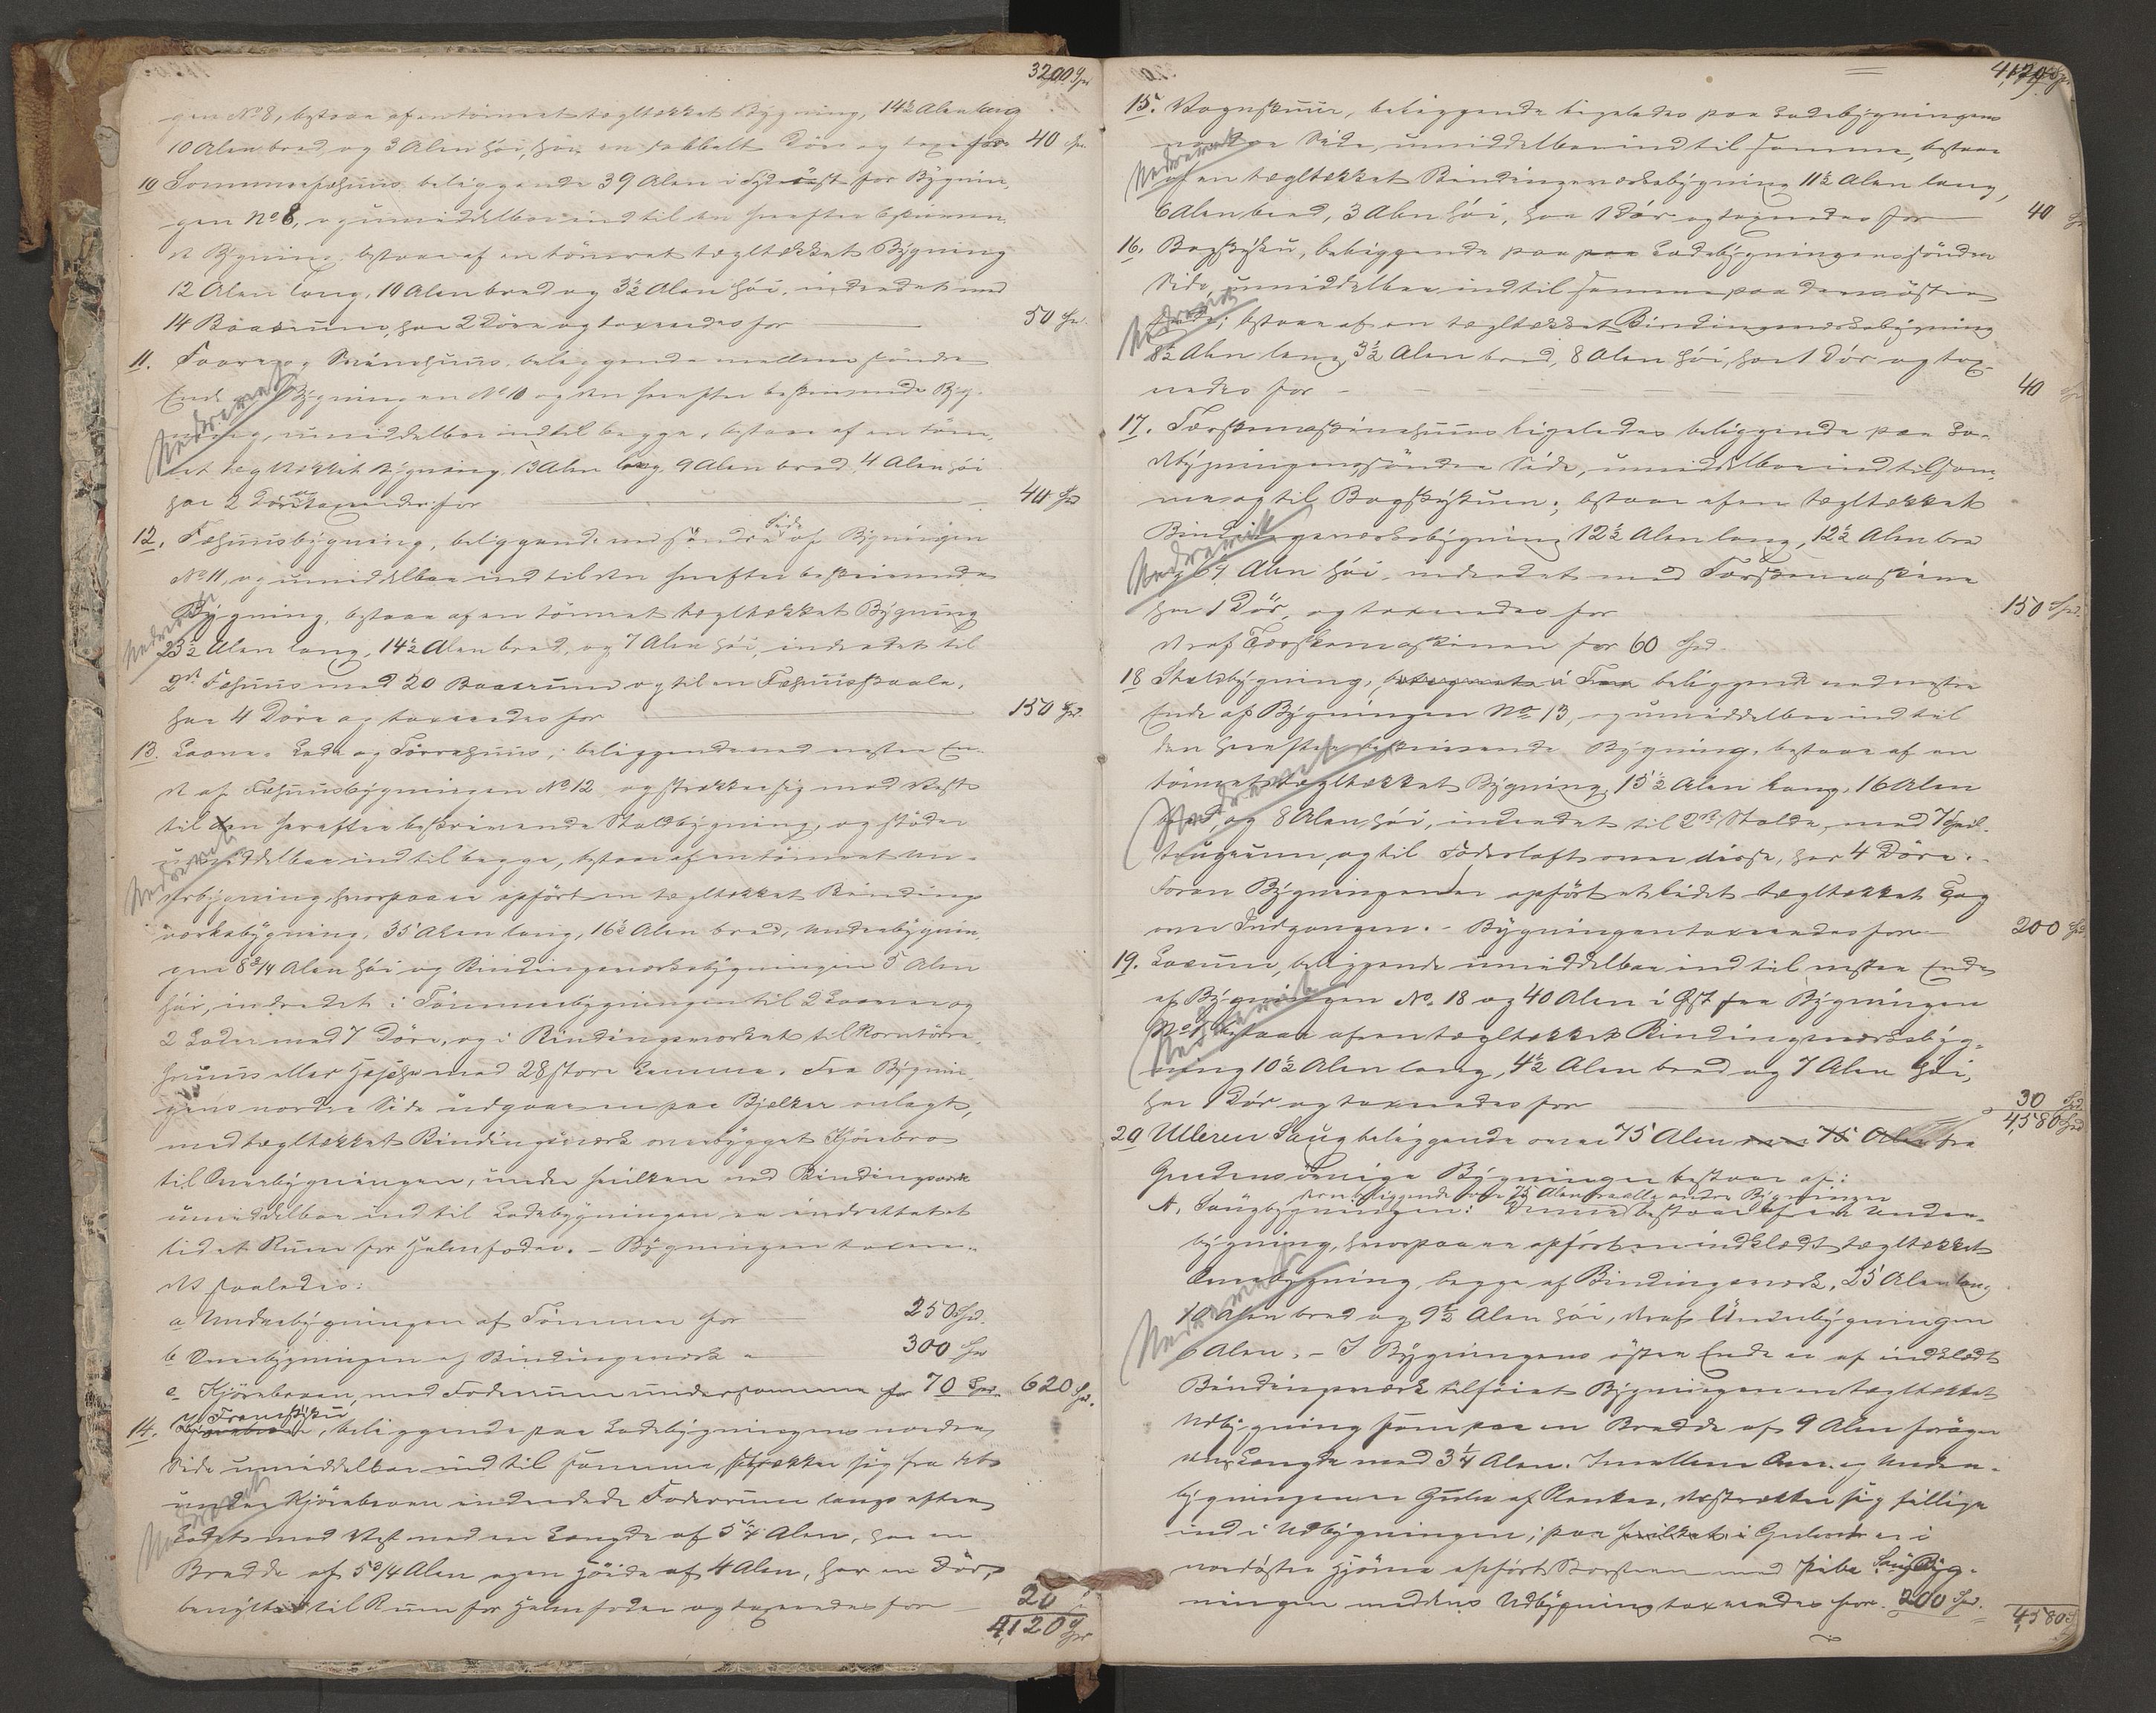 3200 Spd
gen No 8, bestaar af en tömret tegltækket Bygning, 14½ Alen lang
10 Alen bred og 3 Alen høi, har en dobbelt Dör og taxeres for 40 Spd.
10 Sommerfæhuus beliggende 39 Alen i Sydöst for Bygnin-
gen No 8, og umiddelbar ind til den herefter beskreven-
de Bygning, bestaar af en tömret tegltækket Bygning
12 Alen lang, 10 Alen bred og 3½ Alen høi, indredet med
14 Baaserum, har 2 Döre og taxeredes for 50 Spd.
11. Faare og Sviinehuus, beliggende mellem söndre
Ende af Bygningen No 10 og den herefter beskrivende Byg-
ning, umiddelbar ind til begge, bestaar af en töm-
ret tegltækket Bygning, 13 Alen lang, 9 Alen bred 4 Alen høi
har 2 Döre og taxeredes for 40 Spd
Nedrevet
12. Fæhuusbygning, beliggende ved söndre Side af Bygningen
No 11, og umiddelbar ind til den herefter beskrivende
Bygning, bestaar af en tömret tegltækket Bygning
23½ Alen lang, 14½ Alen bred, og 7 Alen høi, indredet til
2de Fæhuus med 20 Baaserum og til en Fæhuusskaale,
har 4 Döre og taxeredes for 150 Spd.
Nedrevet
13. Laave, Lade og Törrehuus, beliggende ved vestre En-
de af Fæhuusbygningen No 12 og strækker sig mod Vest
til den herefter beskrivende Staldbygning, og stöder
umiddelbar ind til begge, bestaar af en tömret Un-
derbygning, hvorpaa er opfört en tegltækket Bindings-
værksbygning, 35 Alen lang, 16½ Alen bred, Underbygnin-
gen 8¾ Alen høi og Bindingsværksbygningen 5 Alen
høi, indredet i Tömmerbygningen til 2 Laaver og
2 Lader med 7 Döre, og i Bindingsværket til Korntörre-
huus eller med 28 store Lemme. Fra Bygnin-
gens nordre Side udgaar en paa Bjelker anlagt,
med tegltækket Bindingsværk overbygget Kjörebro
til Overbygningen, under hvilken ved Bindingsværk
umiddelbar ind til Ladebygningen er indrettet et
lidet Rum for Halmfoder. – Bygningen taxere-
des saaledes:
a Underbygningen af Tömmer for 250 Spd.
b Overbygningen af Bindingsværk " 300 Spd
c Kjörebroen, med Foderrum under samme for 70 Spd. 620 Spd.
Nedrevet
14. Kjörebroen, beliggende paa Ladebygningens nordre
Side umiddelbar ind til samme strækker sig fra det
under Kjörebroen indredede Foderrum langs efter
Ladet mod Vest med en Længde af 5¼ Alen, har en
Bredde af 5¾ Alen og en Höide af 4 Alen, har en Dör,
benyttet til Rum for Halmfoder og taxeredes for 20 "
4,120 Spd
Nedrevet
4,120 Spd
15. Vognskuur, beliggende ligeledes paa Ladebygningens
nordre Side, umiddelbar ind til samme, bestaar
af en tegltækket Bindingsværksbygning 11½ Alen lang,
6 Alen bred, 3 Alen høi, har 1 Dör og taxeredes for 40 Spd
Nedrevet
16. Bagskyku, beliggende paa paa Ladebygningens söndre
Side umiddelbar ind til samme paa dens östre
Ende; bestaar af en tegltækket Bindingsværksbygning
8½ Alen lang, 3½ Alen bred, 8 Alen høi, har 1 Dör og tax-
eredes for 40 Spd
Nedrevet
17. Tærskemaskinehuus ligeledes beliggende paa La-
debygningens söndre Side, umiddelbar ind til sam-
me og til Bagskykuen; bestaar af en tegltækket
Bindingsværksbygning 12½ Alen lang, 12½ Alen bred
og 6¼ Alen høi, indredet med Tærskemaskine
har 1 Dör, og taxeredes for 150 Spd.
deraf Tærskemaskinen for 60 Spd.
Nedrevet
18 Staldbygning, beliggende ved vestre
Ende af Bygningen No 13, og umiddelbar ind til
den herefter beskrivende Bygning, bestaar af en
tömret tegltækket Bygning, 15½ Alen lang, 16 Alen
bred, og 8 Alen høi, indredet til 2de Stalde, med 7 Spil-
taugrum, og til Foderloft over disse, har 4 Döre. –
Foran Bygningen er opfört et lidet tegltækket Tag
over Indgangen. – Bygningen taxeredes for 200 Spd
Nedrevet
19. Locum, beliggende umiddelbar ind til vestre Ende
af Bygningen No. 18 og 40 Alen i Øst fra Bygningen
No 1, bestaar af en tegltækket Bindingsværksbyg-
ning 10½ Alen lang, 4½ Alen bred og 7 Alen høi,
har 1 Dör og taxeredes for 30 Spd
4,580 Spd
Nedrevet
20 Ulleren Saug beliggende over 75 Alen over 75 Alen fra
Gaardens övrige Bygninger bestaar af:
A. Saugbygningen: den beliggende over 75 Alen fra alle andre Bygninger
Denne bestaar af en Under-
bygning, hvorpaa er opfört en indklædt tegltækket
Overbygning, begge af Bindingsværk, 25 Alen lang
10 Alen bred og 9½ Alen høi, deraf Underbygningen
6 Alen. – I Bygningens östre Ende er af indklædt
Bindingsværk tilföiet Bygningen en tegltækket
Udbygning som paa en Bredde af 9 Alen foröger
dens Længde med 3¼ Alen. Imellem Over- og Under-
bygningen er Gulv af Planker, der strækker sig tillige
ind i Udbygningen; paa hvilket i Gulvet er i
nordöstre Hjörne opfört Skorsteen med Pibe. Saugbyg-
ningen med dens Udbygning taxeredes for. 200 Spd.
4,580 S
Nedrevet